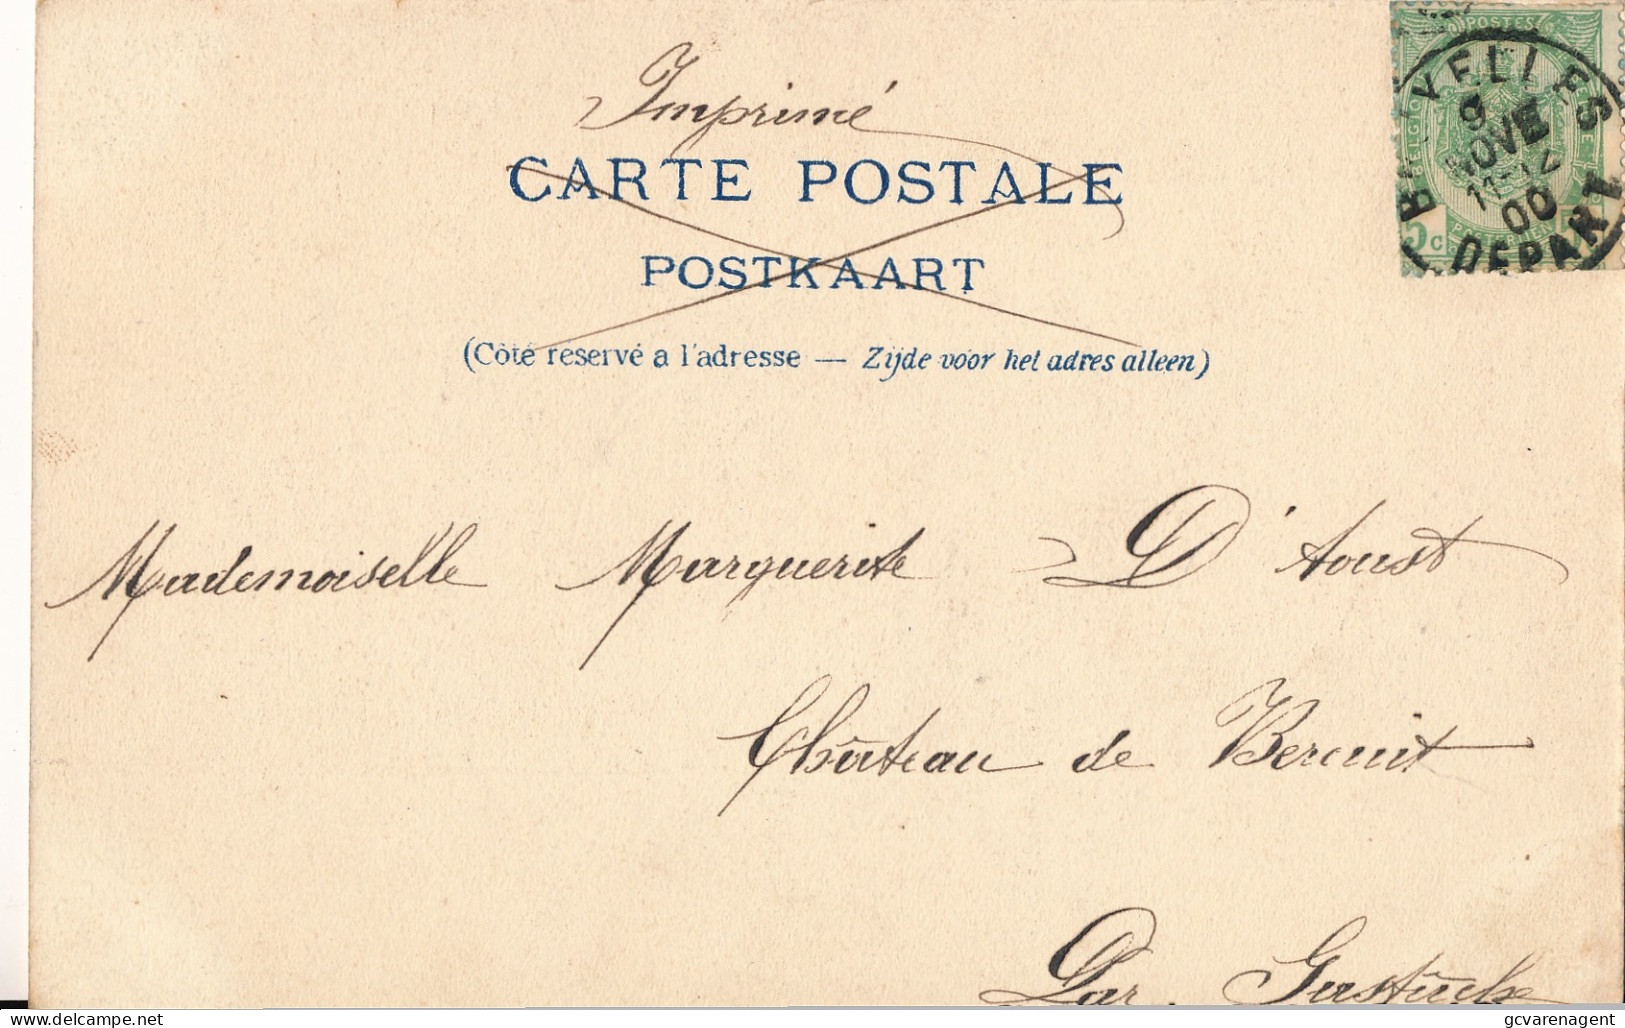 Imprimé
CARTE POSTALE
POSTKAART
(Côté reservé a l'adresse — Zijde voor het adres alleen)
POSTES
BELGIQUE
5c
POSTERIJEN
9
NOVE
11-12
00
DEPART
Mademoiselle Marguerite D'Aoust
Château de Bercuit
Par Gastuche
delcampe.net
gcvarenagent